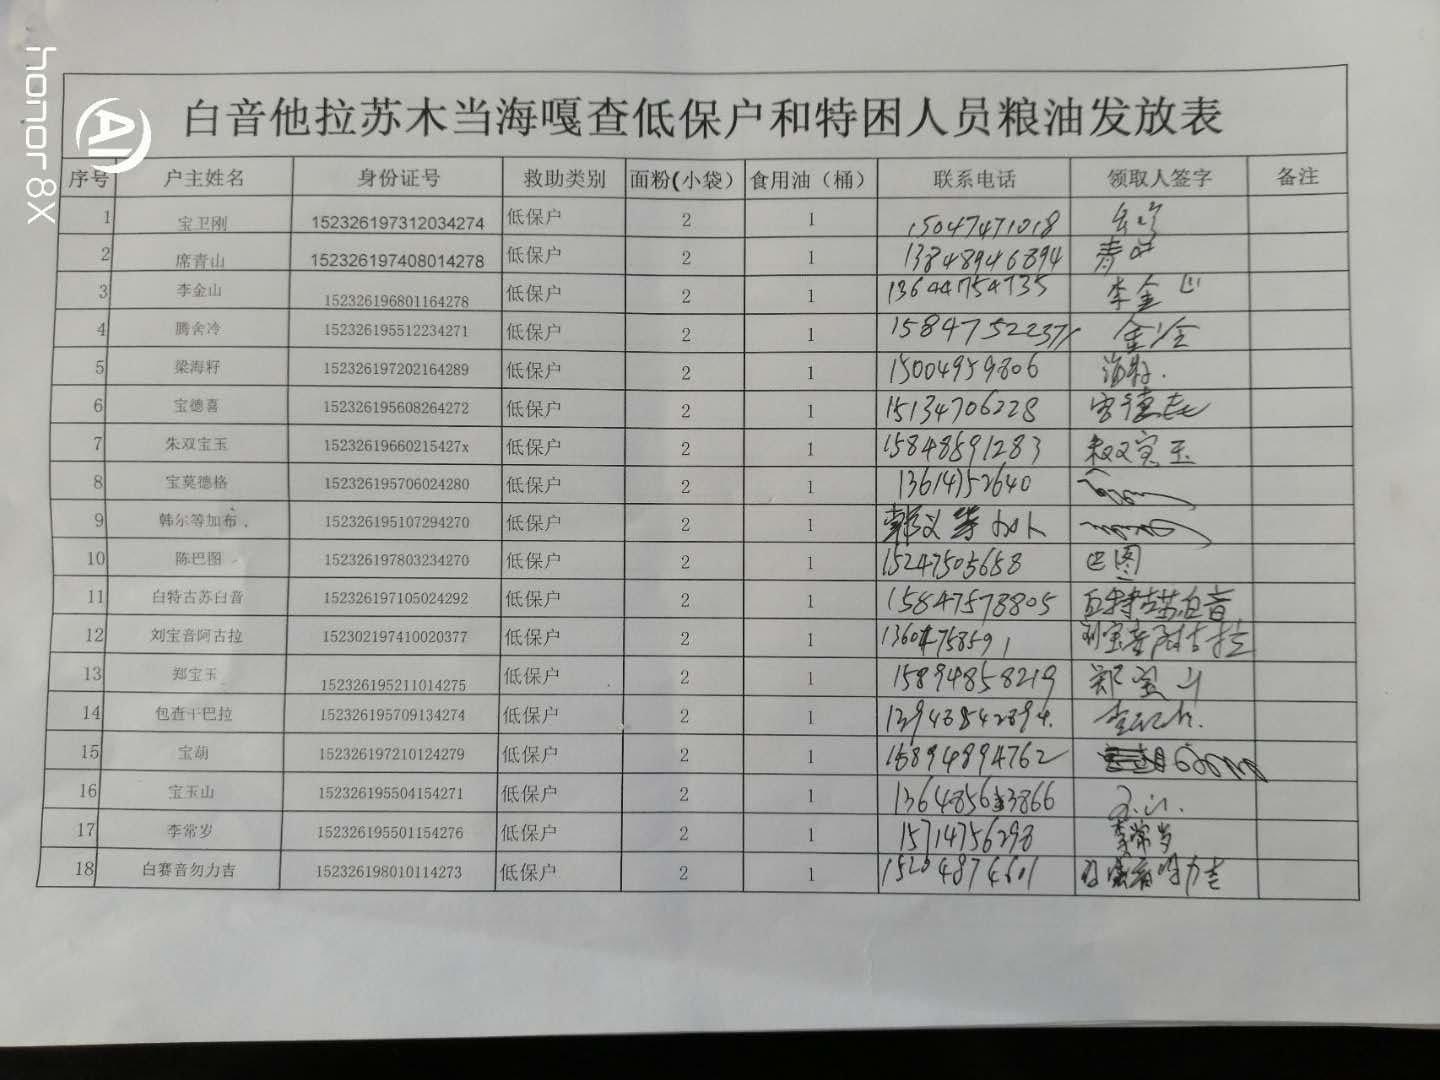 honor 8X
AI
白音他拉苏木当海嘎查低保户和特困人员粮油发放表
序号 户主姓名 身份证号 救助类别 面粉(小袋) 食用油（桶） 联系电话 领取人签字 备注
1 宝卫刚 152326197312034274 低保户 2 1 15047471018
2 席青山 152326197408014278 低保户 2 1 13848946894 青山
3 李金山 152326196801164278 低保户 2 1 13644754735 李金山
4 腾舍冷 152326195512234271 低保户 2 1 15847522371
5 梁海籽 152326197202164289 低保户 2 1 15004959806 海籽.
6 宝德喜 152326195608264272 低保户 2 1 15134706228 宝德喜
7 朱双宝玉 15232619660215427x 低保户 2 1 15848591283 朱双宝玉
8 宝莫德格 152326195706024280 低保户 2 1 13614752640
9 韩尔等加布 152326195107294270 低保户 2 1
10 陈巴图 152326197803234270 低保户 2 1 15247505658 巴图
11 白特古苏白音 152326197105024292 低保户 2 1 15847578805 白特古苏白音
12 刘宝音阿古拉 152302197410020377 低保户 2 1 刘宝音阿古拉
13 郑宝玉 152326195211014275 低保户 2 1 15894858219 郑宝玉
14 包查干巴拉 152326195709134274 低保户 2 1
15 宝葫 152326197210124279 低保户 2 1 15894894762
16 宝玉山 152326195504154271 低保户 2 1 玉山.
17 李常岁 152326195501154276 低保户 2 1 15714756298 李常岁
18 白赛音勿力吉 152326198010114273 低保户 2 1 15204874601 白赛音勿力吉